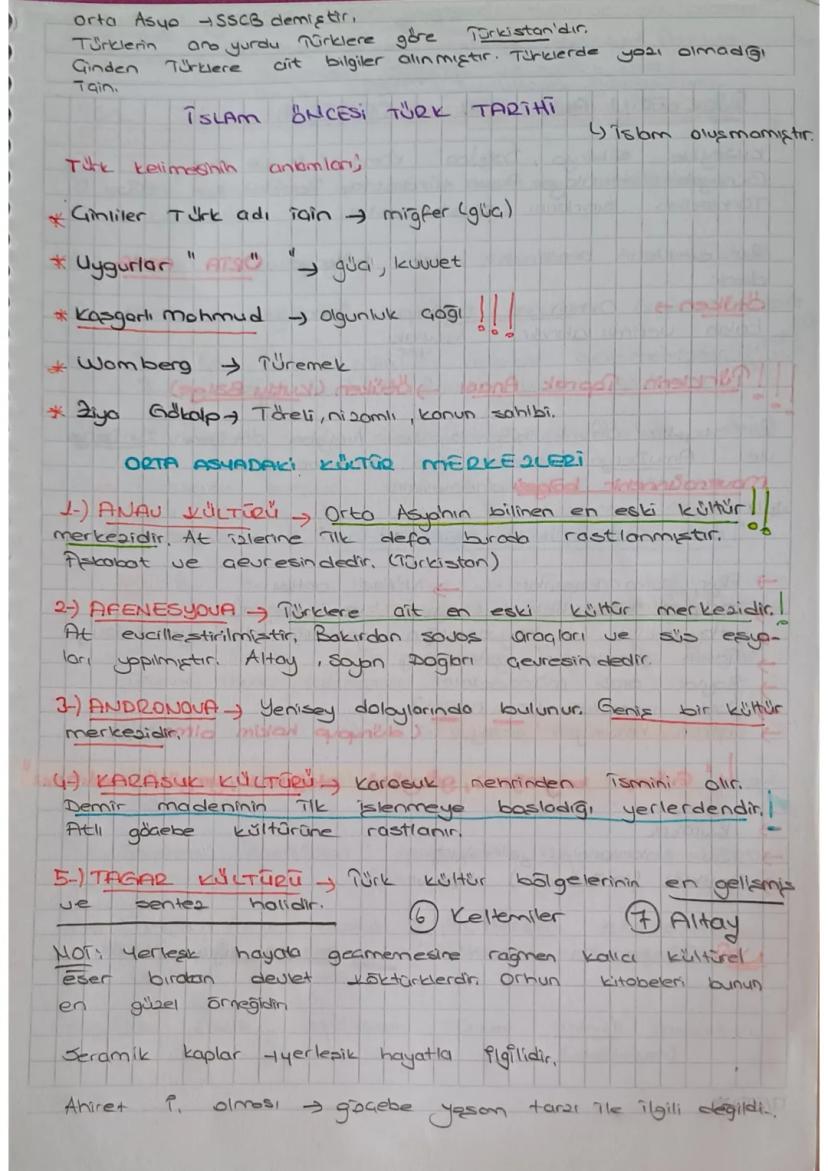 Orta Asya → SSCB demiştir.
Türklerin ana yurdu Türklere göre Türkistan'dır.
Çinden Türklere ait bilgiler alınmıştır. Türklerde yazı olmadığı
için.
İSLAM ÖNCESİ TÜRK TARİHİ
↳ İslam oluşmamıştır.
Türk kelimesinin anlamları;
* Çinliler Türk adı için → miğfer (güç)
* Uygurlar " " " → güç, kuvvet
* Kaşgarlı Mahmud → olgunluk çağı !!!
* Womberg → Türemek
* Ziya Gökalp → Töreli, nizamlı, kanun sahibi.
ORTA ASYADAKİ KÜLTÜR MERKEZLERİ
1-) ANAV KÜLTÜRÜ → Orta Asya'nın bilinen en eski kültür !!
merkezidir. At izlerine ilk defa burada rastlanmıştır.
Aşkabat ve çevresindedir. (Türkistan)
2-) AFENESYOVA → Türklere ait en eski kültür merkezidir.!
At evcilleştirilmiştir. Bakırdan savaş araçları ve süs eşya-
ları yapılmıştır. Altay, Sayan Dağları çevresindedir.
3-) ANDRONOVA → Yenisey dolaylarında bulunur. Geniş bir kültür
merkezidir.
4-) KARASUK KÜLTÜRÜ → Karasuk nehrinden ismini alır.
Demir madeninin ilk işlenmeye başladığı yerlerdendir.!
Atlı göçebe kültürüne rastlanır.
5-) TAGAR KÜLTÜRÜ → Türk kültür bölgelerinin en gelişmiş
ve sentez halidir.
6 Keltemiler 7 Altay
NOT: Yerleşik hayata geçmemesine rağmen kalıcı kültürel
eser bırakan devlet Köktürklerdir. Orhun kitabeleri bunun
en güzel örneğidir.
Seramik kaplar → yerleşik hayatla ilgilidir.
Ahiret i. olması → göçebe yaşam tarzı ile ilgili değildi.